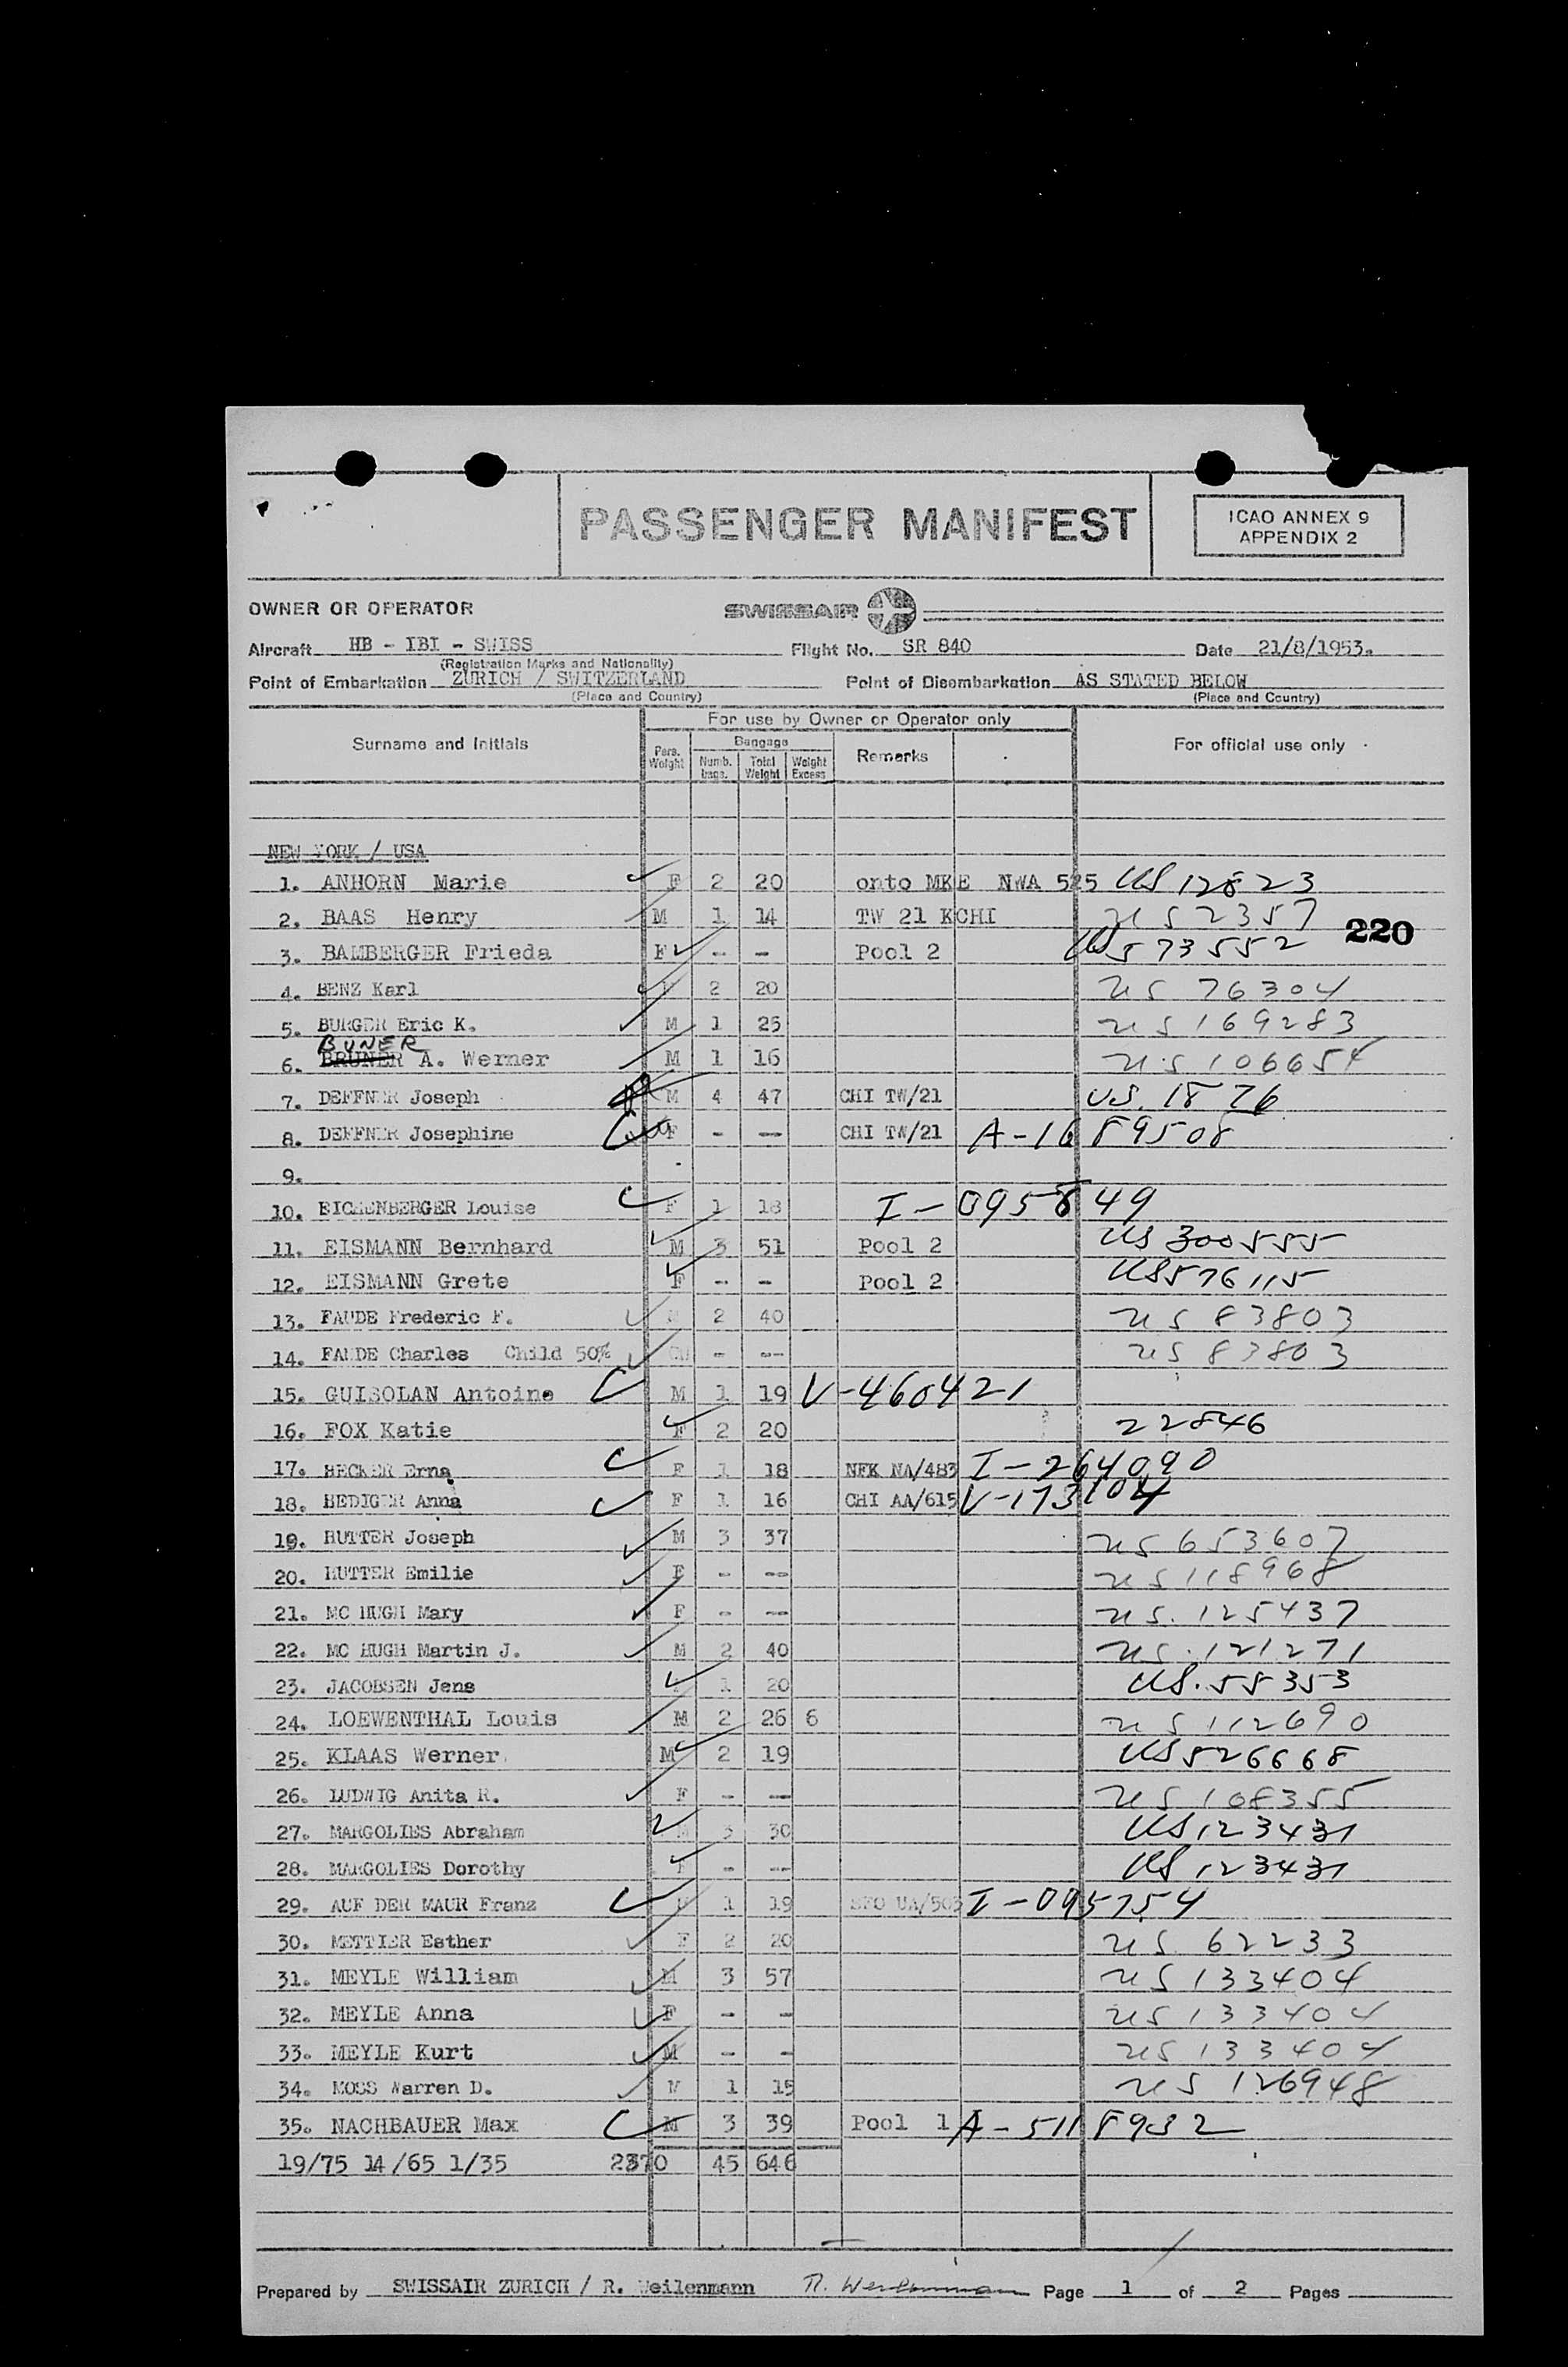 PASSENGER MANIFEST
ICAO ANNEX 9
APPENDIX 2
OWNER OR OPERATOR SWISSAIR
Aircraft HB - IBI - SWISS Flight No. SR 840 Date 21/8/1953.
(Registration Marks and Nationality)
Point of Embarkation ZURICH / SWITZERLAND Point of Disembarkation AS STATED BELOW
(Place and Country) (Place and Country)
For use by Owner or Operator only
Surname and Initials Pers. Weight Baggage Numb. bags. Total Weight Weight Excess Remarks For official use only
NEW YORK / USA
1. ANHORN Marie F 2 20 onto MKE NWA 525 US 12823
2. BAAS Henry M 1 14 TW 21 KCHI US 2357
220
3. BAMBERGER Frieda F -- - Pool 2 US 573552
4. BENZ Karl 2 20 US 76304
5. BURGER Eric K. M 1 25 US 169283
BUNER
6. BRUNER A. Werner M 1 16 US 106654
7. DEFFNER Joseph M 4 47 CHI TW/21 US. 1876
8. DEFFNER Josephine F - -- CHI TW/21 A-16 89508
9.
10. EICHENBERGER Louise F 1 18 I-095849
11. EISMANN Bernhard M 3 51 Pool 2 US 300555
12. EISMANN Grete F -- - Pool 2 US 576115
13. FAUDE Frederic F. M 2 40 US 83803
14. FAUDE Charles Child 50% CH - -- US 83803
15. GUISOLAN Antoine M 1 19 V-460421
16. FOX Katie F 2 20 22846
17. HECKER Erna F 1 18 NFK NA/483 I-264090
18. HEDIGER Anna F 1 16 CHI AA/615 V-173104
19. HUTTER Joseph M 3 37 US 653607
20. HUTTER Emilie F - -- US 118968
21. MC HUGH Mary F - -- US. 125437
22. MC HUGH Martin J. M 2 40 US. 121271
23. JACOBSEN Jens 1 20 US. 55353
24. LOEWENTHAL Louis M 2 26 6 US 112690
25. KLAAS Werner M 2 19 US 526668
26. LUDWIG Anita R. F - -- US 108355
27. MARGOLIES Abraham M 3 30 US 123431
28. MARGOLIES Dorothy F - -- US 123431
29. AUF DER MAUR Franz M 1 19 SFO UA/503 I-095754
30. METTIER Esther F 2 20 US 62233
31. MEYLE William M 3 57 US 133404
32. MEYLE Anna F - - US 133404
33. MEYLE Kurt M - - US 133404
34. MOSS Warren D. M 1 15 US 126948
35. NACHBAUER Max M 3 39 Pool 1 A-511 8932
19/75 14/65 1/35 2370 45 646
Prepared by SWISSAIR ZURICH / R. Weilenmann R. Weilenmann Page 1 of 2 Pages